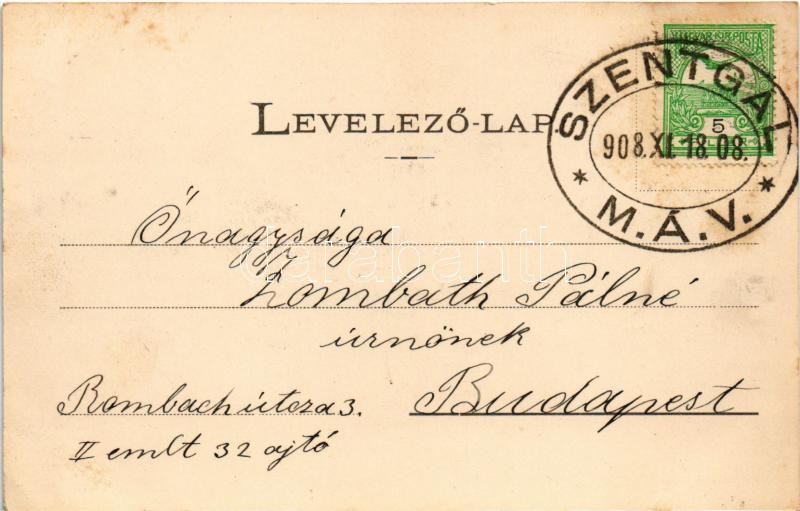 MAGYAR KIR. POSTA
5
SZENTGÁL
908.XI.18.08.
* M.Á.V. *
LEVELEZŐ-LAP
Őnagysága
Zombath Pálné
úrnőnek
Budapest
Rombach útcza 3.
II emlt 32 ajtó
darabanth